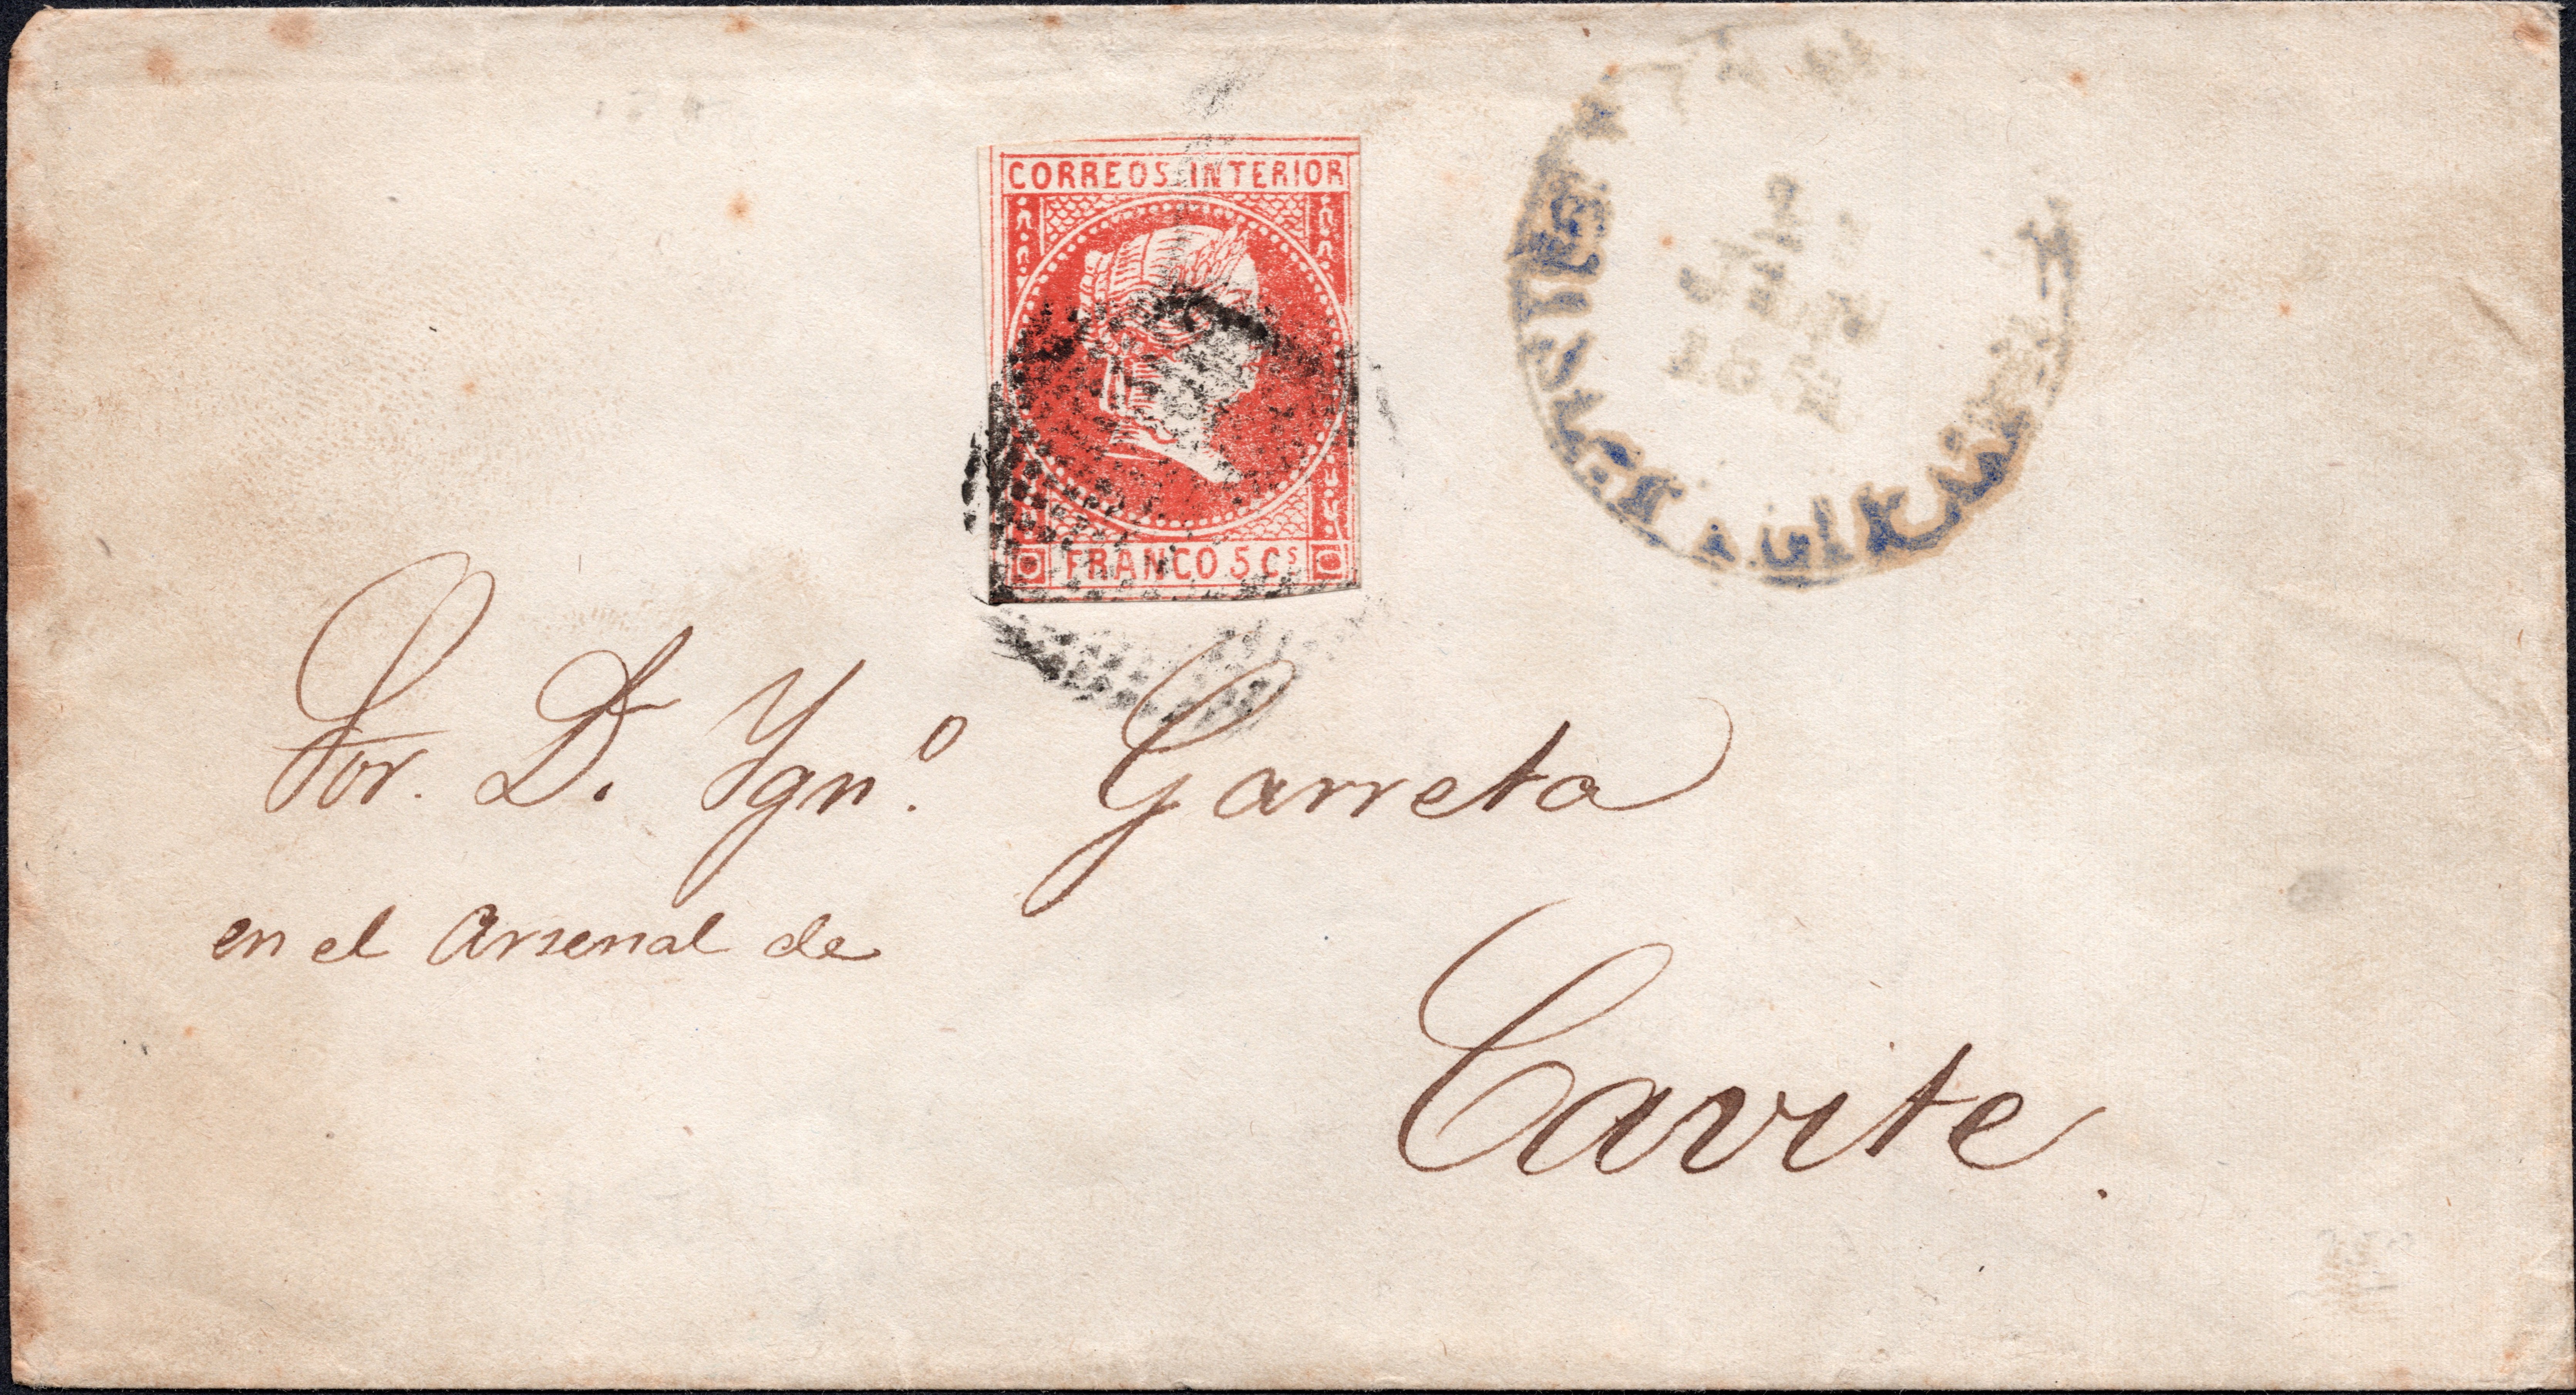 CORREOS INTERIOR
FRANCO 5 Cs
Sor. D. Ygn.º Garreta
en el Arsenal de
Cavite.